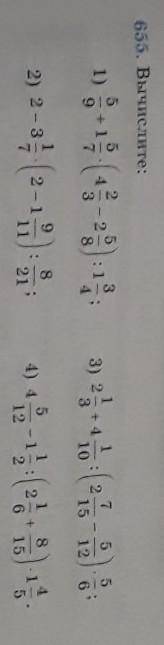 655. Вычислите:
1) 5/9 + 1 5/7 · (4 2/3 − 2 5/8) : 1 3/4;
2) 2 − 3 1/7 · (2 − 1 9/11) : 8/21;
3) 2 1/3 + 4 1/10 : (2 7/15 − 5/12) · 5/6;
4) 4 5/12 − 1 1/2 : (2 1/6 + 8/15) · 1 4/5.